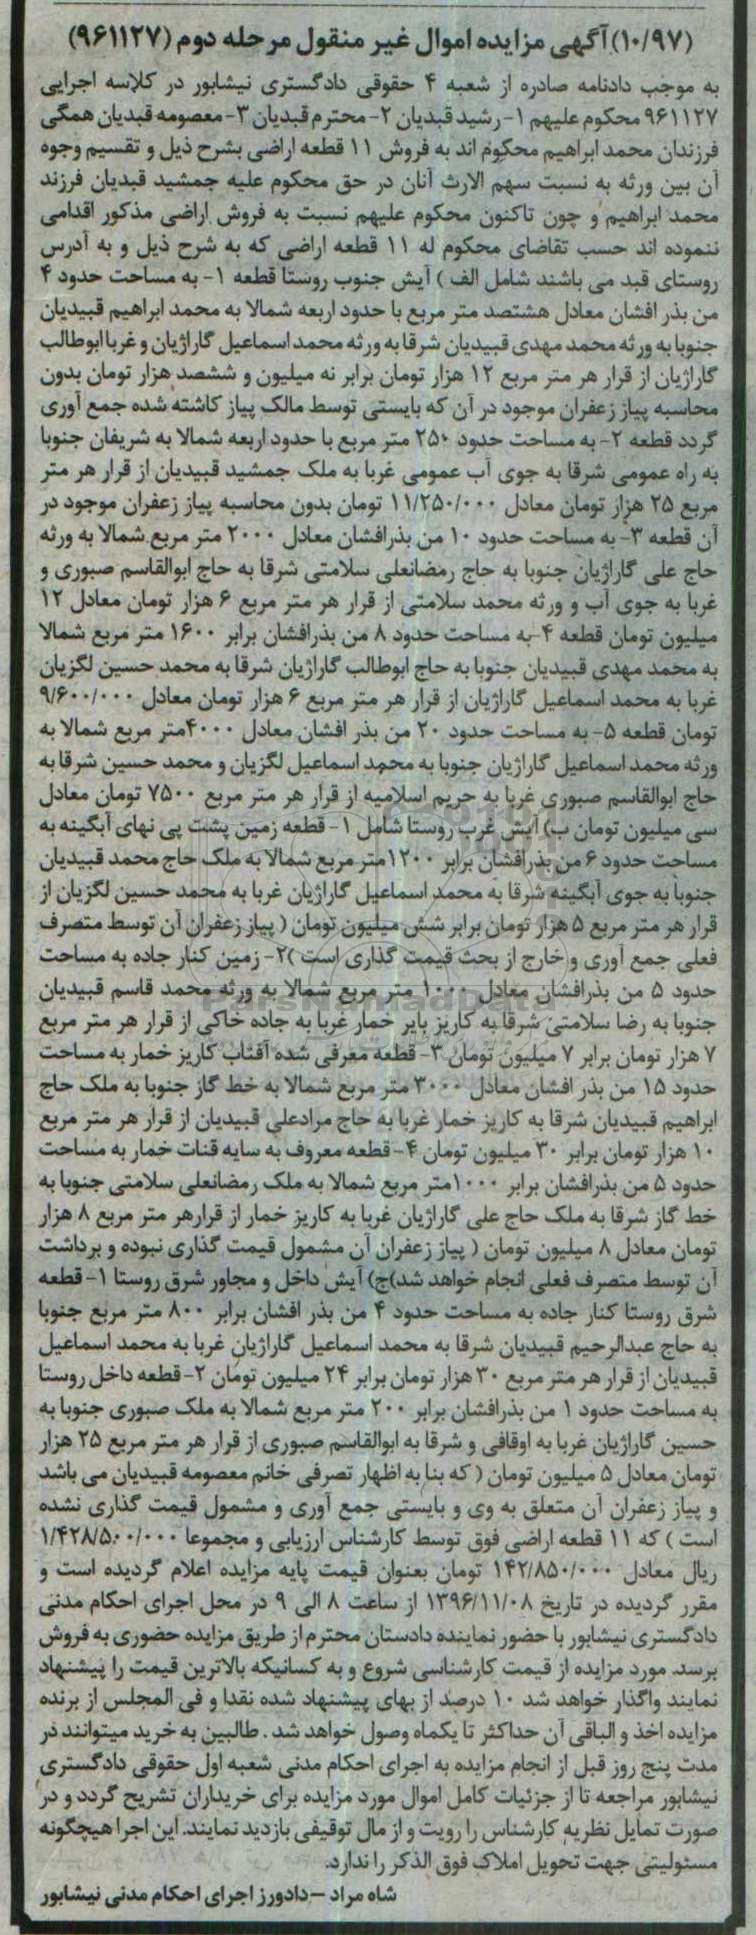 (۱۰/۹۷)آگهی مزایده اموال غیر منقول مرحله دوم (۹۶۱۱۲۷)
به موجب دادنامه صادره از شعبه ۴ حقوقی دادگستری نیشابور در کلاسه اجرایی
۹۶۱۱۲۷ محکوم علیهم ۱- رشید قبدیان ۲- محترم قبدیان ۳- معصومه قبدیان همگی
فرزندان محمد ابراهیم محکوم اند به فروش ۱۱ قطعه اراضی بشرح ذیل و تقسیم وجوه
آن بین ورثه به نسبت سهم الارث آنان در حق محکوم علیه جمشید قبدیان فرزند
محمد ابراهیم و چون تاکنون محکوم علیهم نسبت به فروش اراضی مذکور اقدامی
ننموده اند حسب تقاضای محکوم له ۱۱ قطعه اراضی که به شرح ذیل و به آدرس
روستای قبد می باشند شامل الف ) آیش جنوب روستا قطعه ۱- به مساحت حدود ۴
من بذر افشان معادل هشتصد متر مربع با حدود اربعه شمالا به محمد ابراهیم قبیدیان
جنوبا به ورثه محمد مهدی قبیدیان شرقا به ورثه محمد اسماعیل گاراژیان و غربا ابوطالب
گاراژیان از قرار هر متر مربع ۱۲ هزار تومان برابر نه میلیون و ششصد هزار تومان بدون
محاسبه پیاز زعفران موجود در آن که بایستی توسط مالک پیاز کاشته شده جمع آوری
گردد قطعه ۲- به مساحت حدود ۲۵۰ متر مربع با حدود اربعه شمالا به شریفان جنوبا
به راه عمومی شرقا به جوی آب عمومی غربا به ملک جمشید قبیدیان از قرار هر متر
مربع ۲۵ هزار تومان معادل ۱۱/۲۵۰/۰۰۰ تومان بدون محاسبه پیاز زعفران موجود در
آن قطعه ۳- به مساحت حدود ۱۰ من بذرافشان معادل ۲۰۰۰ متر مربع شمالا به ورثه
حاج علی گاراژیان جنوبا به حاج رمضانعلی سلامتی شرقا به حاج ابوالقاسم صبوری و
غربا به جوی آب و ورثه محمد سلامتی از قرار هر متر مربع ۶ هزار تومان معادل ۱۲
میلیون تومان قطعه ۴-به مساحت حدود ۸ من بذرافشان برابر ۱۶۰۰ متر مربع شمالا
به محمد مهدی قبیدیان جنوبا به حاج ابوطالب گاراژیان شرقا به محمد حسین لگزیان
غربا به محمد اسماعیل گاراژیان از قرار هر متر مربع ۶ هزار تومان معادل ۹/۶۰۰/۰۰۰
تومان قطعه ۵- به مساحت حدود ۲۰ من بذر افشان معادل ۴۰۰۰متر مربع شمالا به
ورثه محمد اسماعیل گاراژیان جنوبا به محمد اسماعیل لگزیان و محمد حسین شرقا به
حاج ابوالقاسم صبوری غربا به حریم اسلامیه از قرار هر متر مربع ۷۵۰۰ تومان معادل
سی میلیون تومان ب) آیش غرب روستا شامل ۱- قطعه زمین پشت پی نهای آبگینه به
مساحت حدود ۶ من بذرافشان برابر ۱۲۰۰متر مربع شمالا به ملک حاج محمد قبیدیان
جنوبا به جوی آبگینه شرقا به محمد اسماعیل گاراژیان غربا به محمد حسین لگزیان از
قرار هر متر مربع ۵ هزار تومان برابر شش میلیون تومان ( پیاز زعفران آن توسط متصرف
فعلی جمع آوری و خارج از بحث قیمت گذاری است )۲- زمین کنار جاده به مساحت
حدود ۵ من بذرافشان معادل ۱۰۰۰ متر مربع شمالا به ورثه محمد قاسم قبیدیان
جنوبا به رضا سلامتی شرقا به کاریز بایر خمار غربا به جاده خاکی از قرار هر متر مربع
۷ هزار تومان برابر ۷ میلیون تومان ۳- قطعه معرفی شده آفتاب کاریز خمار به مساحت
حدود ۱۵ من بذر افشان معادل ۳۰۰۰ متر مربع شمالا به خط گاز جنوبا به ملک حاج
ابراهیم قبیدیان شرقا به کاریز خمار غربا به حاج مرادعلی قبیدیان از قرار هر متر مربع
۱۰ هزار تومان برابر ۳۰ میلیون تومان ۴- قطعه معروف به سایه قنات خمار به مساحت
حدود ۵ من بذرافشان برابر ۱۰۰۰متر مربع شمالا به ملک رمضانعلی سلامتی جنوبا به
خط گاز شرقا به ملک حاج علی گاراژیان غربا به کاریز خمار از قرارهر متر مربع ۸ هزار
تومان معادل ۸ میلیون تومان ( پیاز زعفران آن مشمول قیمت گذاری نبوده و برداشت
آن توسط متصرف فعلی انجام خواهد شد)ج) آیش داخل و مجاور شرق روستا ۱- قطعه
شرق روستا کنار جاده به مساحت حدود ۴ من بذر افشان برابر ۸۰۰ متر مربع جنوبا
به حاج عبدالرحیم قبیدیان شرقا به محمد اسماعیل گاراژیان غربا به محمد اسماعیل
قبیدیان از قرار هر متر مربع ۳۰ هزار تومان برابر ۲۴ میلیون تومان ۲- قطعه داخل روستا
به مساحت حدود ۱ من بذرافشان برابر ۲۰۰ متر مربع شمالا به ملک صبوری جنوبا به
حسین گاراژیان غربا به اوقافی و شرقا به ابوالقاسم صبوری از قرار هر متر مربع ۲۵ هزار
تومان معادل ۵ میلیون تومان ( که بنا به اظهار تصرفی خانم معصومه قبیدیان می باشد
و پیاز زعفران آن متعلق به وی و بایستی جمع آوری و مشمول قیمت گذاری نشده
است ) که ۱۱ قطعه اراضی فوق توسط کارشناس ارزیابی و مجموعا ۱/۴۲۸/۵۰۰/۰۰۰
ریال معادل ۱۴۲/۸۵۰/۰۰۰ تومان بعنوان قیمت پایه مزایده اعلام گردیده است و
مقرر گردیده در تاریخ ۱۳۹۶/۱۱/۰۸ از ساعت ۸ الی ۹ در محل اجرای احکام مدنی
دادگستری نیشابور با حضور نماینده دادستان محترم از طریق مزایده حضوری به فروش
برسد. مورد مزایده از قیمت کارشناسی شروع و به کسانیکه بالاترین قیمت را پیشنهاد
نمایند واگذار خواهد شد ۱۰ درصد از بهای پیشنهاد شده نقدا و فی المجلس از برنده
مزایده اخذ و الباقی آن حداکثر تا یکماه وصول خواهد شد . طالبین به خرید میتوانند در
مدت پنج روز قبل از انجام مزایده به اجرای احکام مدنی شعبه اول حقوقی دادگستری
نیشابور مراجعه تا از جزئیات کامل اموال مورد مزایده برای خریداران تشریح گردد و در
صورت تمایل نظریه کارشناس را رویت و از مال توقیفی بازدید نمایند. این اجرا هیچگونه
مسئولیتی جهت تحویل املاک فوق الذکر را ندارد.
شاه مراد – دادورز اجرای احکام مدنی نیشابور